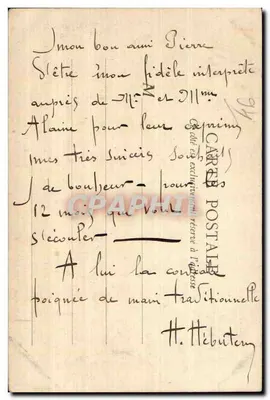 mon bon ami Pierre
D'être mon fidèle interprète
auprès de Mr et Mme
Alaine pour leur exprimer
mes très sincères souhaits
de bonheur - pour les
12 mois qui vont
s'écouler -
A lui la cordiale
poignée de main traditionnelle
H. Hébutern
CARTE POSTALE
Ce côté est exclusivement réservé à l'adresse
CPAPHIL